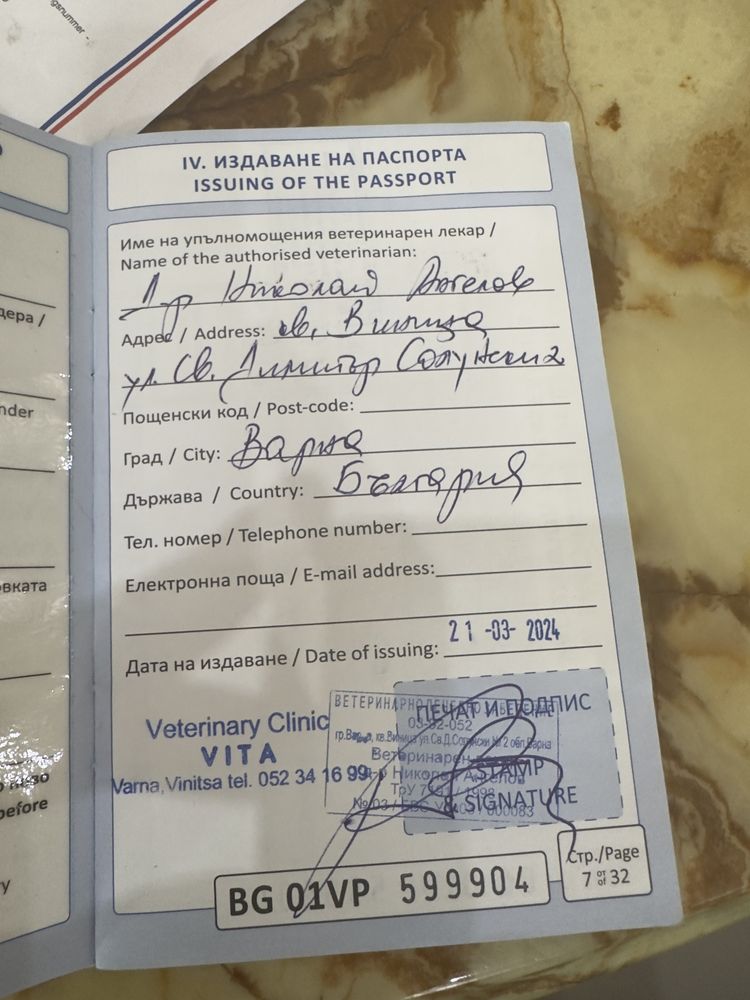 gsnummer -
IV. ИЗДАВАНЕ НА ПАСПОРТА
ISSUING OF THE PASSPORT
Име на упълномощения ветеринарен лекар /
Name of the authorised veterinarian:
Д-р Николай Ангелов
Адрес / Address: кв. Виница
ул. Св. Димитър Солунски 2
Пощенски код / Post-code:
Град / City: Варна
Държава / Country: България
Тел. номер / Telephone number:
Електронна поща / E-mail address:
Дата на издаване / Date of issuing: 21 -03- 2024
Veterinary Clinic
VITA
Varna, Vinitsa tel. 052 34 16 99
ПЕЧАТ И ПОДПИС
STAMP
& SIGNATURE
гр. Варна, кв. Виница ул. Св. Д. Солунски № 2 обл. Варна
Ветеринарен
д-р Николай Ангелов
BG 01VP 599904
Стр./Page
7 от/of 32
дера /
nder
овката
before